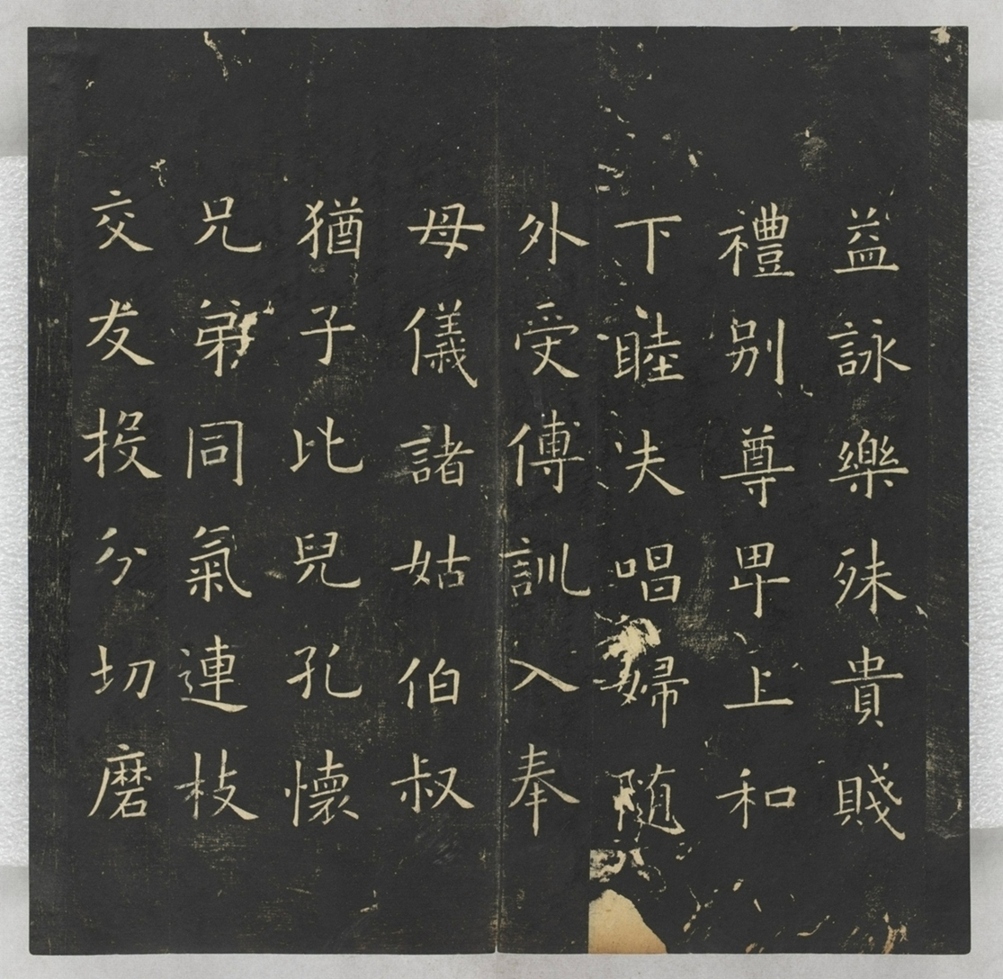 益詠樂殊貴賤
禮別尊卑上和
下睦夫唱婦随
外受傅訓入奉
母儀諸姑伯叔
猶子比兒孔懷
兄弟同氣連枝
交友投分切磨